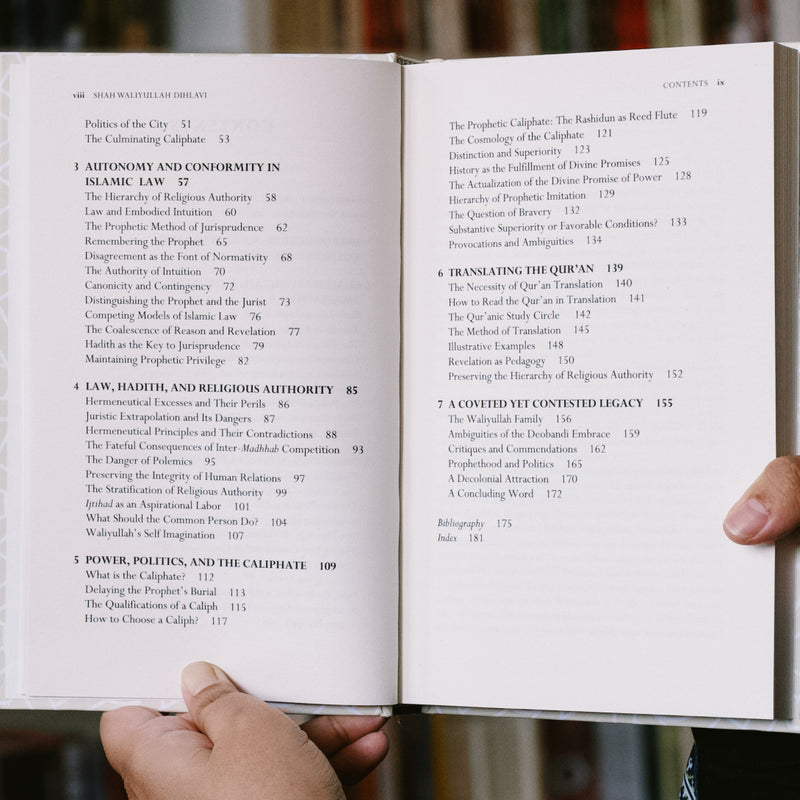 viii SHAH WALIYULLAH DIHLAVI
Politics of the City 51
The Culminating Caliphate 53
3 AUTONOMY AND CONFORMITY IN
ISLAMIC LAW 57
The Hierarchy of Religious Authority 58
Law and Embodied Intuition 60
The Prophetic Method of Jurisprudence 62
Remembering the Prophet 65
Disagreement as the Font of Normativity 68
The Authority of Intuition 70
Canonicity and Contingency 72
Distinguishing the Prophet and the Jurist 73
Competing Models of Islamic Law 76
The Coalescence of Reason and Revelation 77
Hadith as the Key to Jurisprudence 79
Maintaining Prophetic Privilege 82
4 LAW, HADITH, AND RELIGIOUS AUTHORITY 85
Hermeneutical Excesses and Their Perils 86
Juristic Extrapolation and Its Dangers 87
Hermeneutical Principles and Their Contradictions 88
The Fateful Consequences of Inter-Madhhab Competition 93
The Danger of Polemics 95
Preserving the Integrity of Human Relations 97
The Stratification of Religious Authority 99
Ijtihad as an Aspirational Labor 101
What Should the Common Person Do? 104
Waliyullah's Self Imagination 107
5 POWER, POLITICS, AND THE CALIPHATE 109
What is the Caliphate? 112
Delaying the Prophet's Burial 113
The Qualifications of a Caliph 115
How to Choose a Caliph? 117
CONTENTS ix
The Prophetic Caliphate: The Rashidun as Reed Flute 119
The Cosmology of the Caliphate 121
Distinction and Superiority 123
History as the Fulfillment of Divine Promises 125
The Actualization of the Divine Promise of Power 128
Hierarchy of Prophetic Imitation 129
The Question of Bravery 132
Substantive Superiority or Favorable Conditions? 133
Provocations and Ambiguities 134
6 TRANSLATING THE QUR'AN 139
The Necessity of Qur'an Translation 140
How to Read the Qur'an in Translation 141
The Qur'anic Study Circle 142
The Method of Translation 145
Illustrative Examples 148
Revelation as Pedagogy 150
Preserving the Hierarchy of Religious Authority 152
7 A COVETED YET CONTESTED LEGACY 155
The Waliyullah Family 156
Ambiguities of the Deobandi Embrace 159
Critiques and Commendations 162
Prophethood and Politics 165
A Decolonial Attraction 170
A Concluding Word 172
Bibliography 175
Index 181